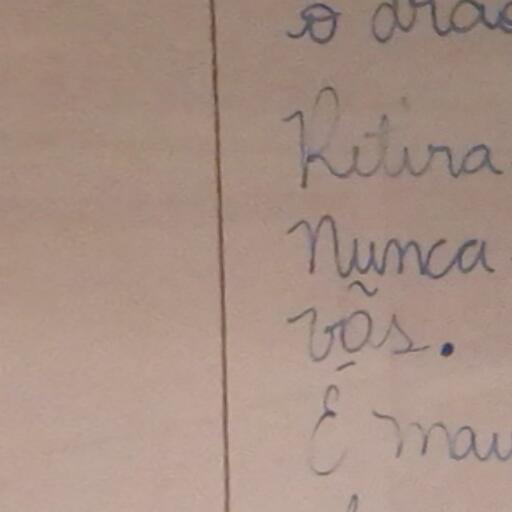 o drag
Retira
Nunca
vãs.
É mau